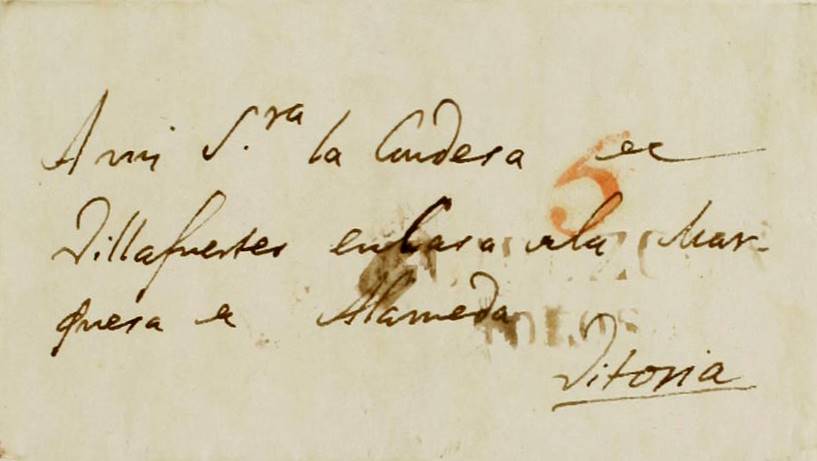 A mi S.ra la Condesa de
Villafuertes en Casa de la Mar-
quesa de Alameda
Vitoria
5